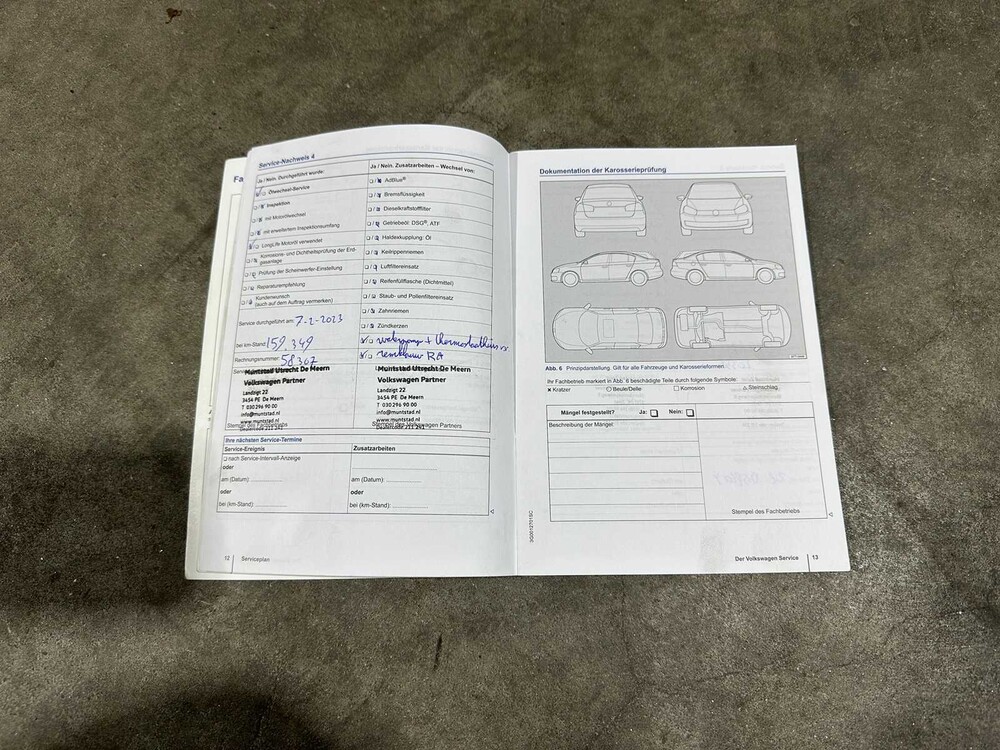 Fa
Service-Nachweis 4
Ja / Nein. Durchgeführt wurde:
Ölwechsel-Service
Inspektion
mit Motorölwechsel
mit erweitertem Inspektionsumfang
LongLife Motoröl verwendet
Korrosions- und Dichtheitsprüfung der Erd-
gasanlage
Prüfung der Scheinwerfer-Einstellung
Reparaturempfehlung
Kundenwunsch
(auch auf dem Auftrag vermerken)
Service durchgeführt am: 7-2-2023
bei km-Stand: 159.349
Rechnungsnummer: 58307
Muntstad Utrecht De Meern
Volkswagen Partner
Landzigt 22
3454 PE De Meern
T 030 296 90 00
info@muntstad.nl
www.muntstad.nl
Dealercode 211 251
Stempel des Fachbetriebs
Ja / Nein. Zusatzarbeiten – Wechsel von:
AdBlue®
Bremsflüssigkeit
Dieselkraftstofffilter
Getriebeöl: DSG®, ATF
Haldexkupplung: Öl
Keilrippenriemen
Luftfiltereinsatz
Reifenfüllflasche (Dichtmittel)
Staub- und Pollenfiltereinsatz
Zahnriemen
Zündkerzen
waterpomp + thermostaathuis
RA
Muntstad Utrecht De Meern
Volkswagen Partner
Landzigt 22
3454 PE De Meern
T 030 296 90 00
info@muntstad.nl
www.muntstad.nl
Dealercode 211 251
Stempel des Volkswagen Partners
Ihre nächsten Service-Termine
Service-Ereignis Zusatzarbeiten
nach Service-Intervall-Anzeige
oder
am (Datum): am (Datum):
oder oder
bei (km-Stand): bei (km-Stand):
12 Serviceplan
Dokumentation der Karosserieprüfung
Abb. 6 Prinzipdarstellung. Gilt für alle Fahrzeuge und Karosserieformen.
Ihr Fachbetrieb markiert in Abb. 6 beschädigte Teile durch folgende Symbole:
Kratzer Beule/Delle Korrosion Steinschlag
Mängel festgestellt? Ja: Nein:
Beschreibung der Mängel:
Stempel des Fachbetriebs
3G0012701SC
Der Volkswagen Service 13